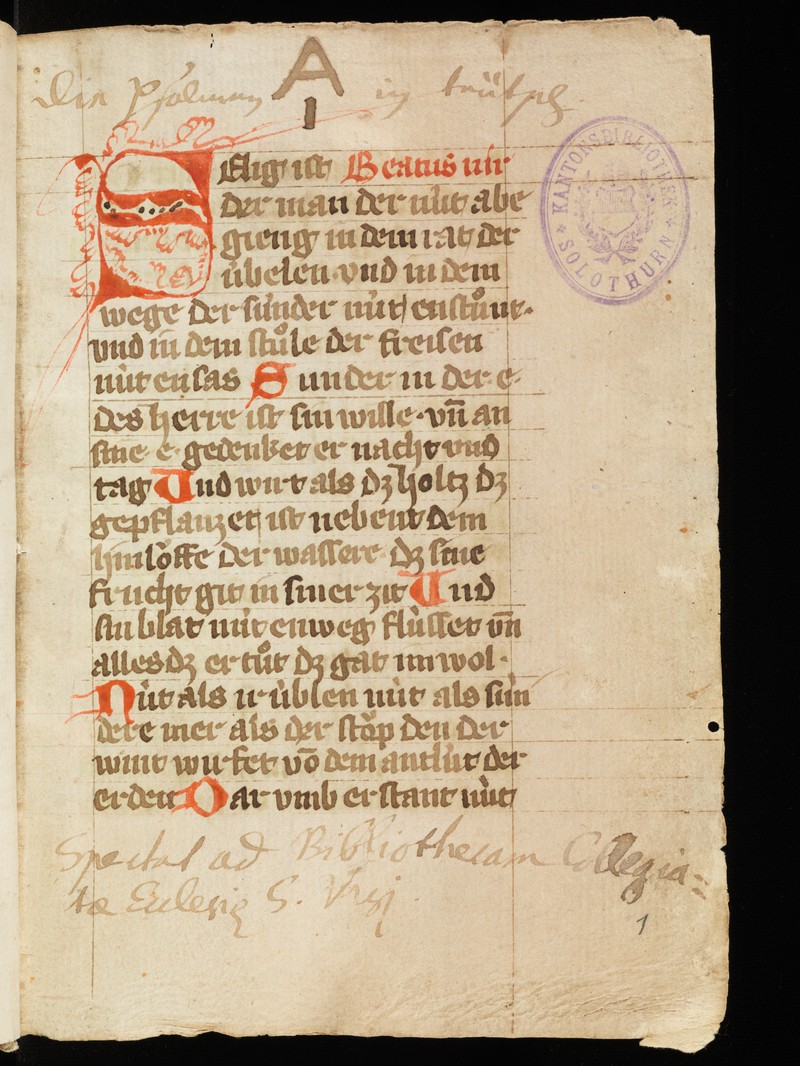 A
Die Psalmen in teütsch.
1
SElig ist Beatus uir
der man der nüt abe
gieng in dem rat der
übelen vnd in dem
wege der sünder nüt enstůnt·
vnd in dem stůle der freisen
nüt ensas Sunder in der e·
des herre ist sin wille · vn̄ an
sine e· gedenket er nacht vnd
tag Und wirt als dz holtz dz
gepflanzet ist nebent dem
hinlöffe der wassere dz sine
frucht git in siner zit Und
sin blat nüt enweg flüsset vn̄
alles dz er tůt dz gat im wol·
Nüt als ir üblen nüt als sün
dere mer als der stöp den der
wint wirfet vō dem antlüt der
erden Dar vmb erstant nüt
Spectat ad Bibliothecam Collegia=
tæ Ecclesiæ S. Vrsi.
1
KANTONSBIBLIOTHEK
* SOLOTHURN *